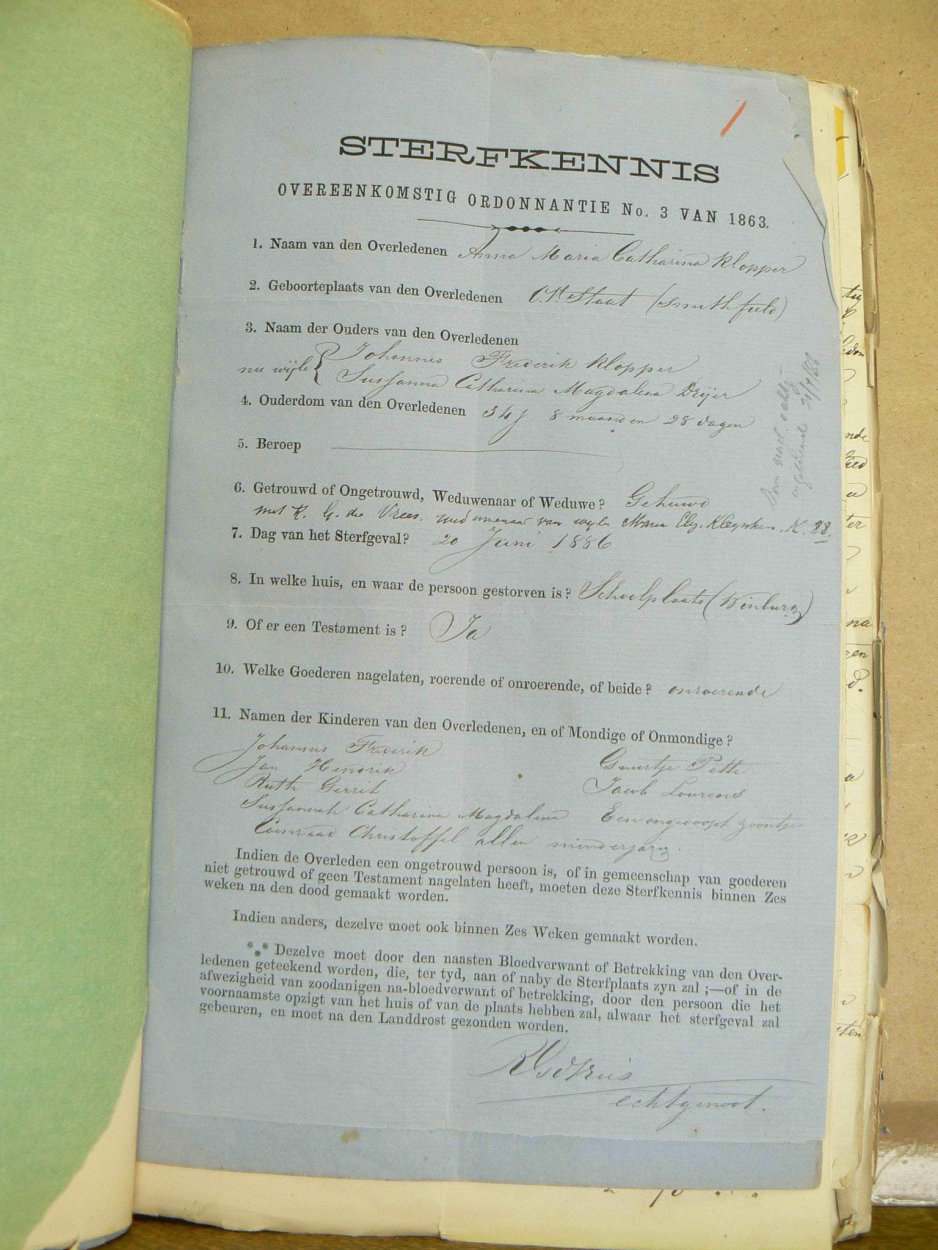 STERFKENNIS
OVEREENKOMSTIG ORDONNANTIE No. 3 VAN 1863.
1. Naam van den Overledenen Anna Maria Catharina Klopper
2. Geboorteplaats van den Overledenen (Smithfield)
3. Naam der Ouders van den Overledenen
Johannes Frederik Klopper
nu wijle Sussanna Catharina Magdalena Drijer
4. Ouderdom van den Overledenen 34 J 8 maanden 28 dagen
5. Beroep
6. Getrouwd of Ongetrouwd, Weduwenaar of Weduwe? Gehuwd
met R. G. de Vries, weduwenaar van wijle Maria Eliz. K. 88.
7. Dag van het Sterfgeval? 20 Juni 1886
8. In welke huis, en waar de persoon gestorven is? Schoolplaats (Winburg)
9. Of er een Testament is? Ja
10. Welke Goederen nagelaten, roerende of onroerende, of beide? onroerende
11. Namen der Kinderen van den Overledenen, en of Mondige of Onmondige?
Johannes Frederik
Jan Hendrik
Ruth Gerrit
Sussannah Catharina Magdalena
Coenraad Christoffel allen minderjarig.
Geertje
Jacob Lourens
Een ongedoopt zoontje
Indien de Overleden een ongetrouwd persoon is, of in gemeenschap van goederen
niet getrouwd of geen Testament nagelaten heeft, moeten deze Sterfkennis binnen Zes
weken na den dood gemaakt worden.
Indien anders, dezelve moet ook binnen Zes Weken gemaakt worden.
*** Dezelve moet door den naasten Bloedverwant of Betrekking van den Over-
ledenen geteekend worden, die, ter tyd, aan of naby de Sterfplaats zyn zal;—of in de
afwezigheid van zoodanigen na-bloedverwant of betrekking, door den persoon die het
voornaamste opzigt van het huis of van de plaats hebben zal, alwaar het sterfgeval zal
gebeuren, en moet na den Landdrost gezonden worden.
RGdVries
echtgenoot.